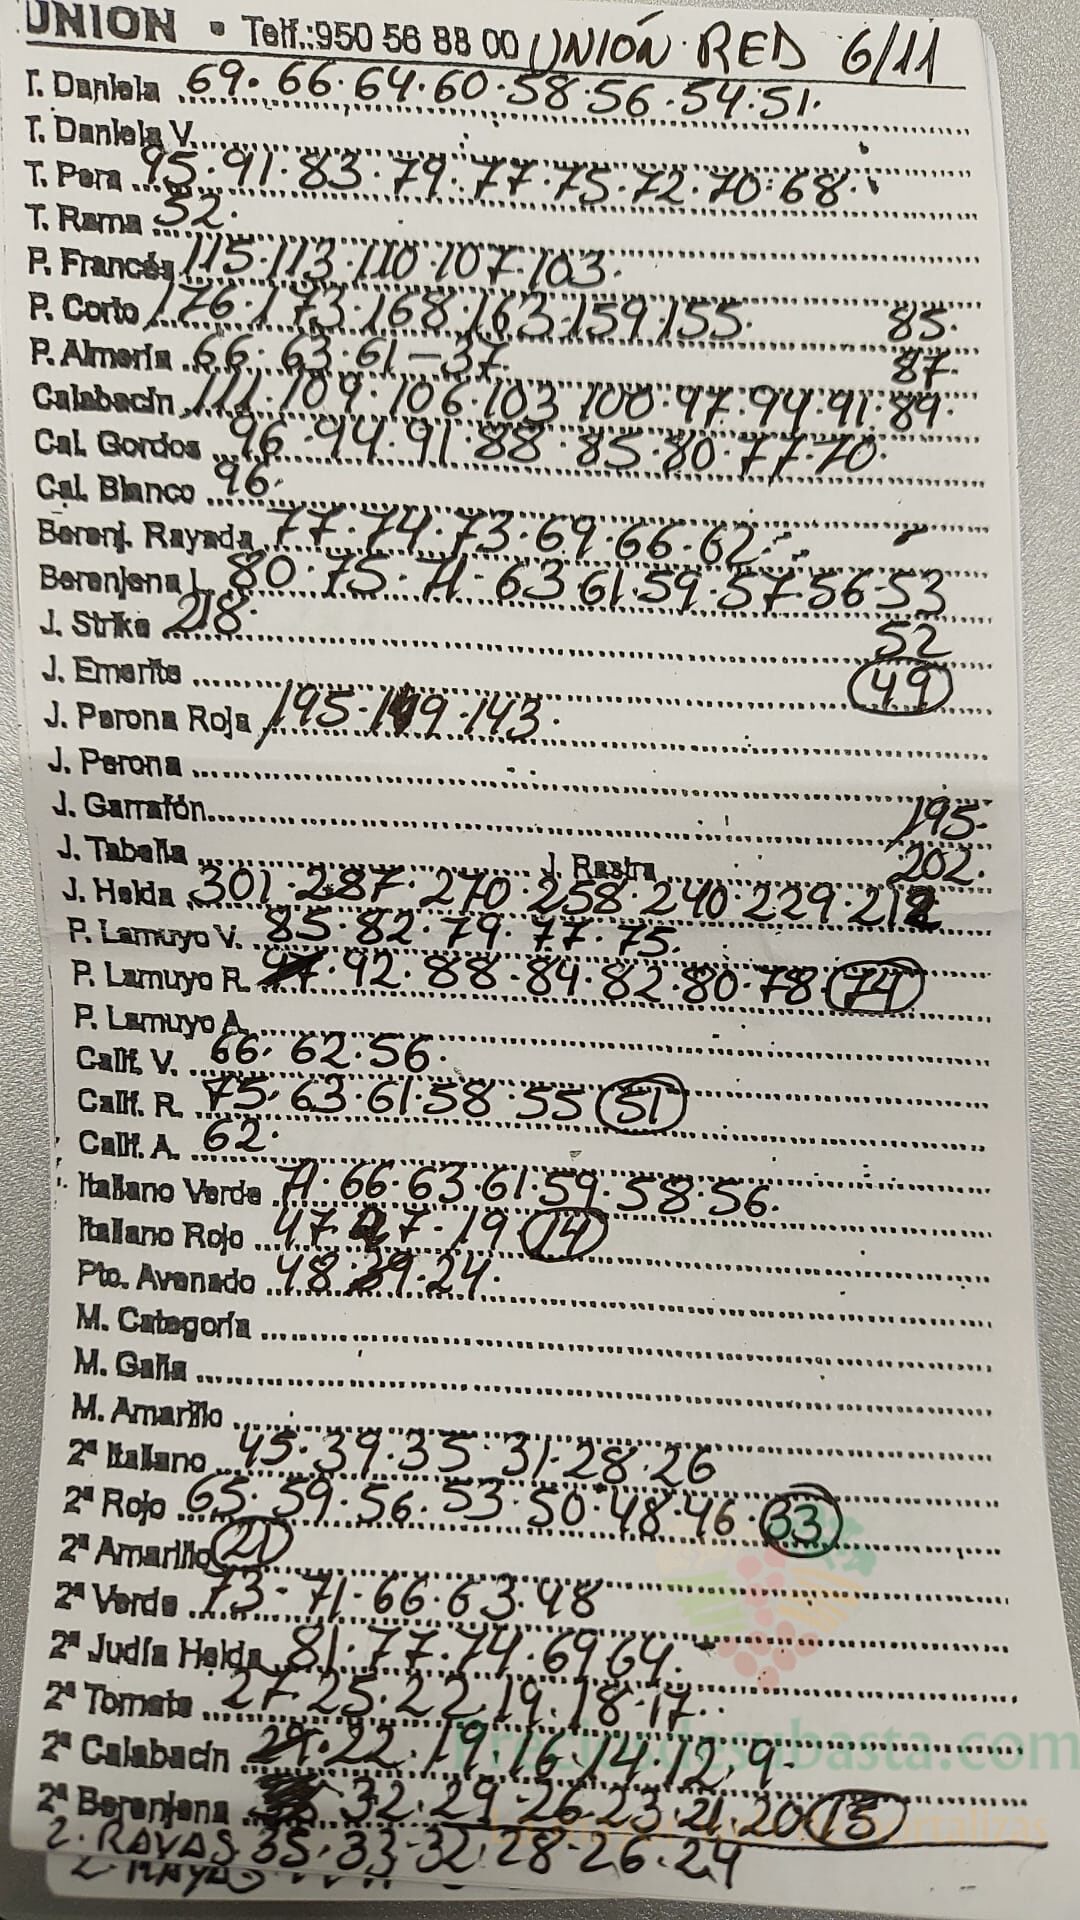 UNION • Telf.:950 56 88 00 UNIÓN RED 6/11
T. Daniela 69. 66. 64. 60. 58. 56. 54. 51.
T. Daniela V.
T. Pera 95. 91. 83. 79. 77. 75. 72. 70. 68.
T. Rama 52.
P. Francés 115. 113. 110. 107. 103.
P. Corto 176. 173. 168. 163. 159. 155. 85.
P. Almería 66. 63. 61 - 37. 87.
Calabacín 111. 109. 106. 103 100. 97. 94. 91. 89.
Cal. Gordos 96. 94. 91. 88. 85. 80. 77. 70.
Cal. Blanco 96.
Berenj. Rayada 77. 74. 73. 69. 66. 62.
Berenjena L. 80. 75. 71. 63 61. 59. 57. 56. 53
J. Strike 218. 52
J. Emerite 49
J. Perona Roja 195. 149. 143.
J. Perona
J. Garrafón 195.
J. Tabella J. Rastra 202.
J. Helda 301. 287. 270. 258. 240. 229. 212
P. Lamuyo V. 85. 82. 79. 77. 75.
P. Lamuyo R. 92. 88. 84. 82. 80. 78. 74
P. Lamuyo A.
Calif. V. 66. 62. 56.
Calif. R. 75. 63. 61. 58. 55 51
Calif. A. 62.
Italiano Verde 71. 66. 63. 61. 59. 58. 56.
Italiano Rojo 47 27. 19 14
Pto. Avenado 48. 39. 24.
M. Categoría
M. Galia
M. Amarillo
2ª Italiano 45. 39. 35. 31. 28. 26
2ª Rojo 65. 59. 56. 53. 50. 48. 46. 33
2ª Amarillo 21
2ª Verde 73 - 71. 66. 63. 48
2ª Judía Helda 81. 77. 74. 69 64.
2ª Tomate 27. 25. 22. 19. 18. 17.
2ª Calabacín 22. 19. 16. 14. 12. 9.
Preciosdesubasta.com
2ª Berenjena 32. 29. 26. 23. 21. 20 15
2. RAYAS. 35. 33 - 32. 28 - 26. 24